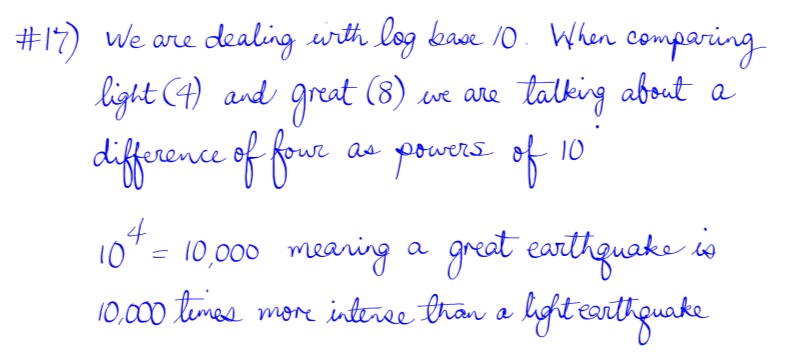 #17) We are dealing with log base 10. When comparing
light (4) and great (8) we are talking about a
difference of four as powers of 10
10⁴ = 10,000 meaning a great earthquake is
10,000 times more intense than a light earthquake